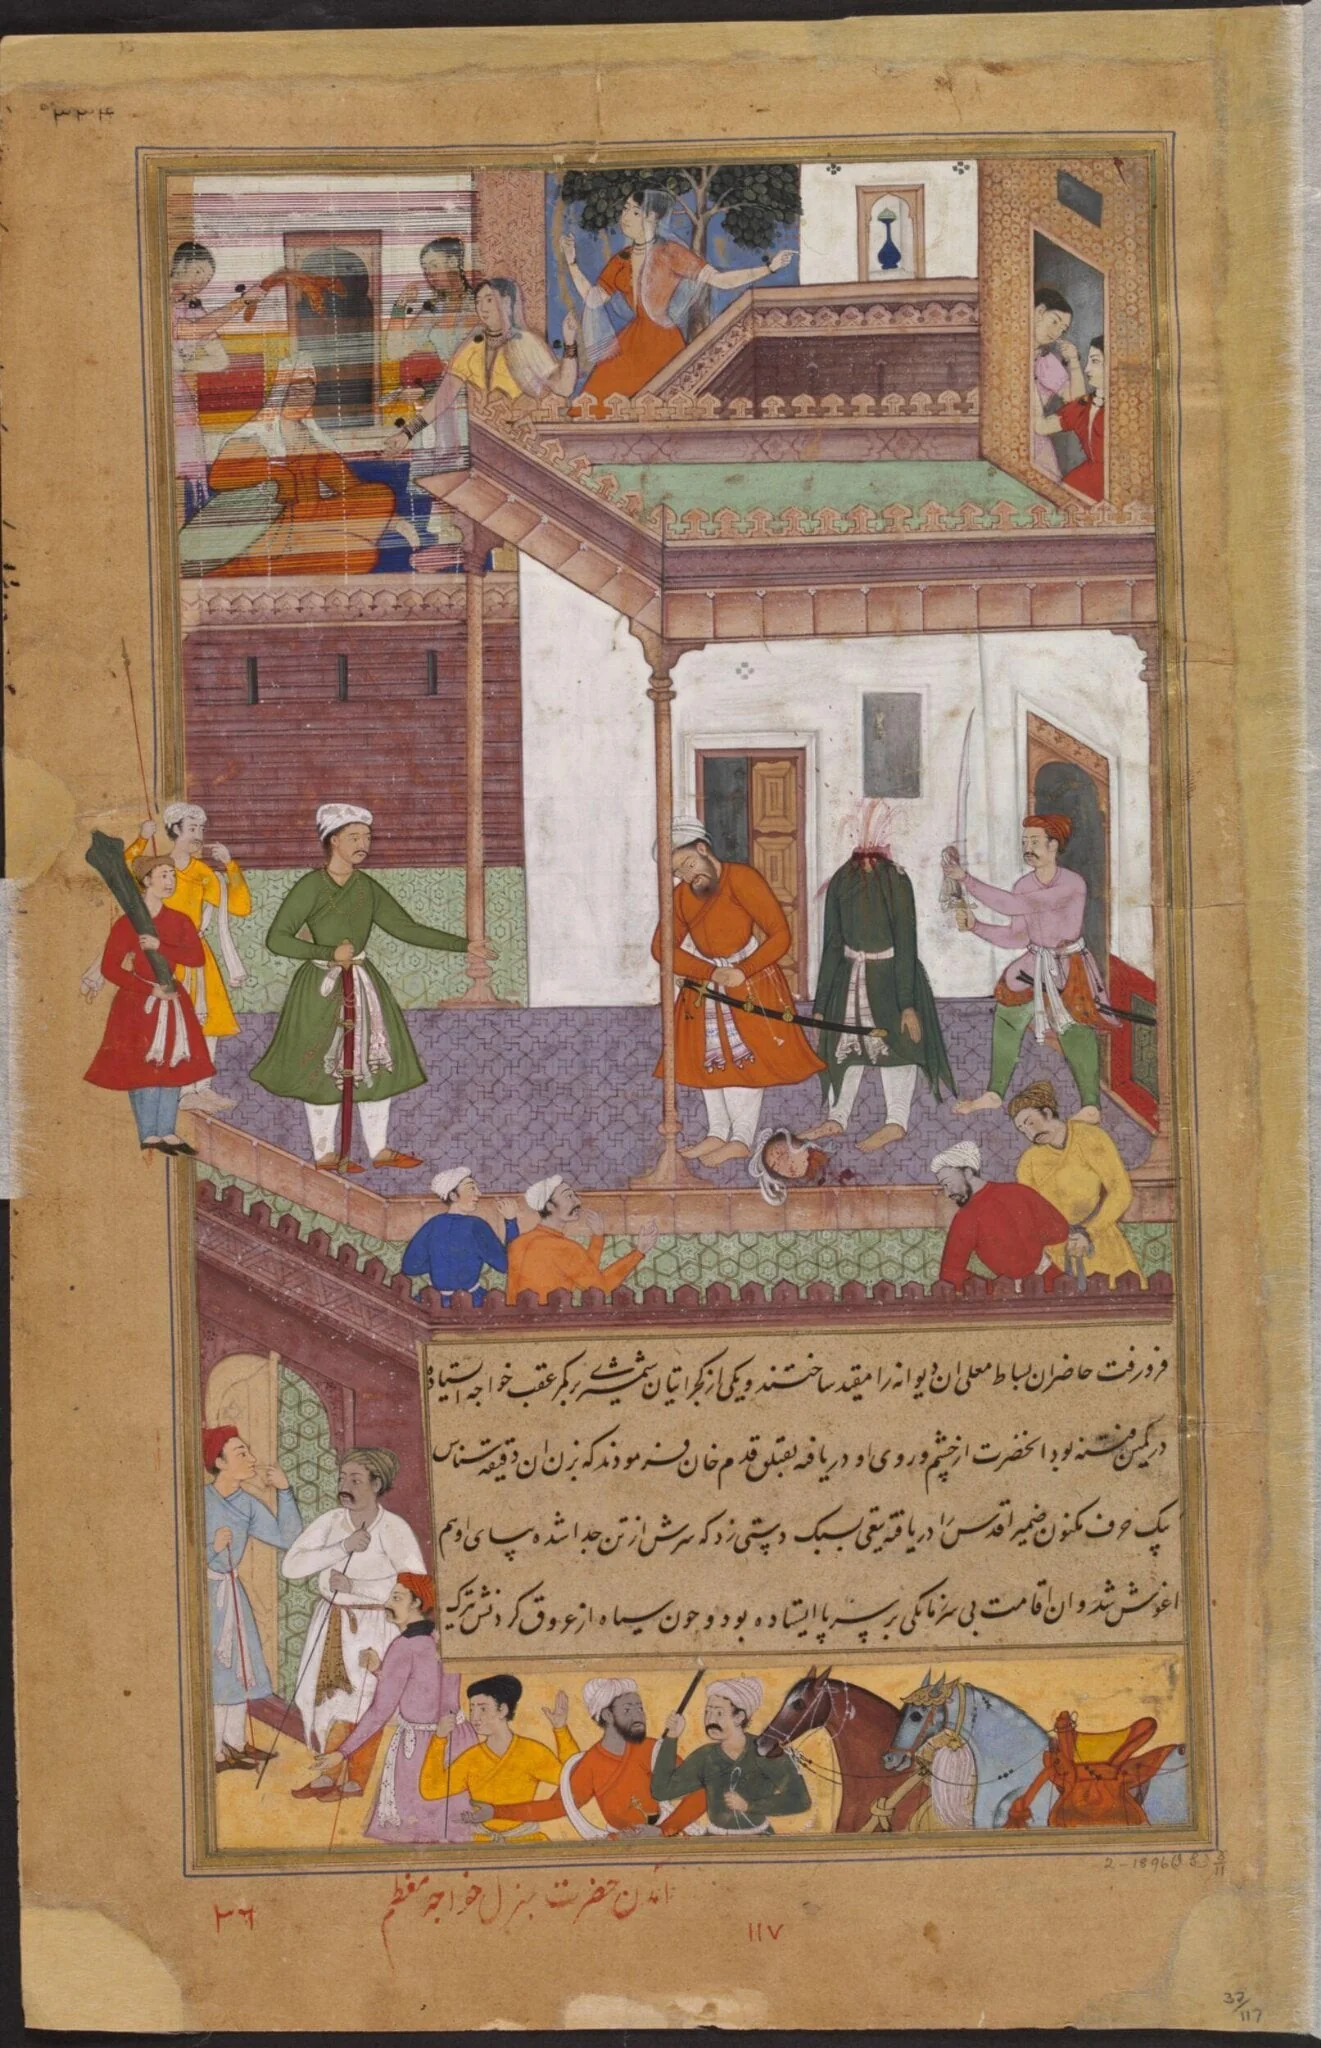 فرو رفت حاضران بساط معلی ان دیوانه را مقید ساختند و یکی از کجراتیان شمشیری بر کمر عقب خواجه ایستاده
در کمین فتنه بود انحضرت از خشم و روی او دریافه بقتلق قدم خان فرمودند که بزن ان دقیقه شناس
یک حرف مکنون ضمیر اقدس را دریافته تیغی بسبک دستی زد که سرش از تن جدا شده بپای او هم
اغوش شد و ان قامت بی سر زمانکی بر سر پا ایستاده بود و خون سیاه از عروق گردنش
امدن حضرت بمنزل خواجه معظم
۳۶
۱۱۷
2-1896
37/117